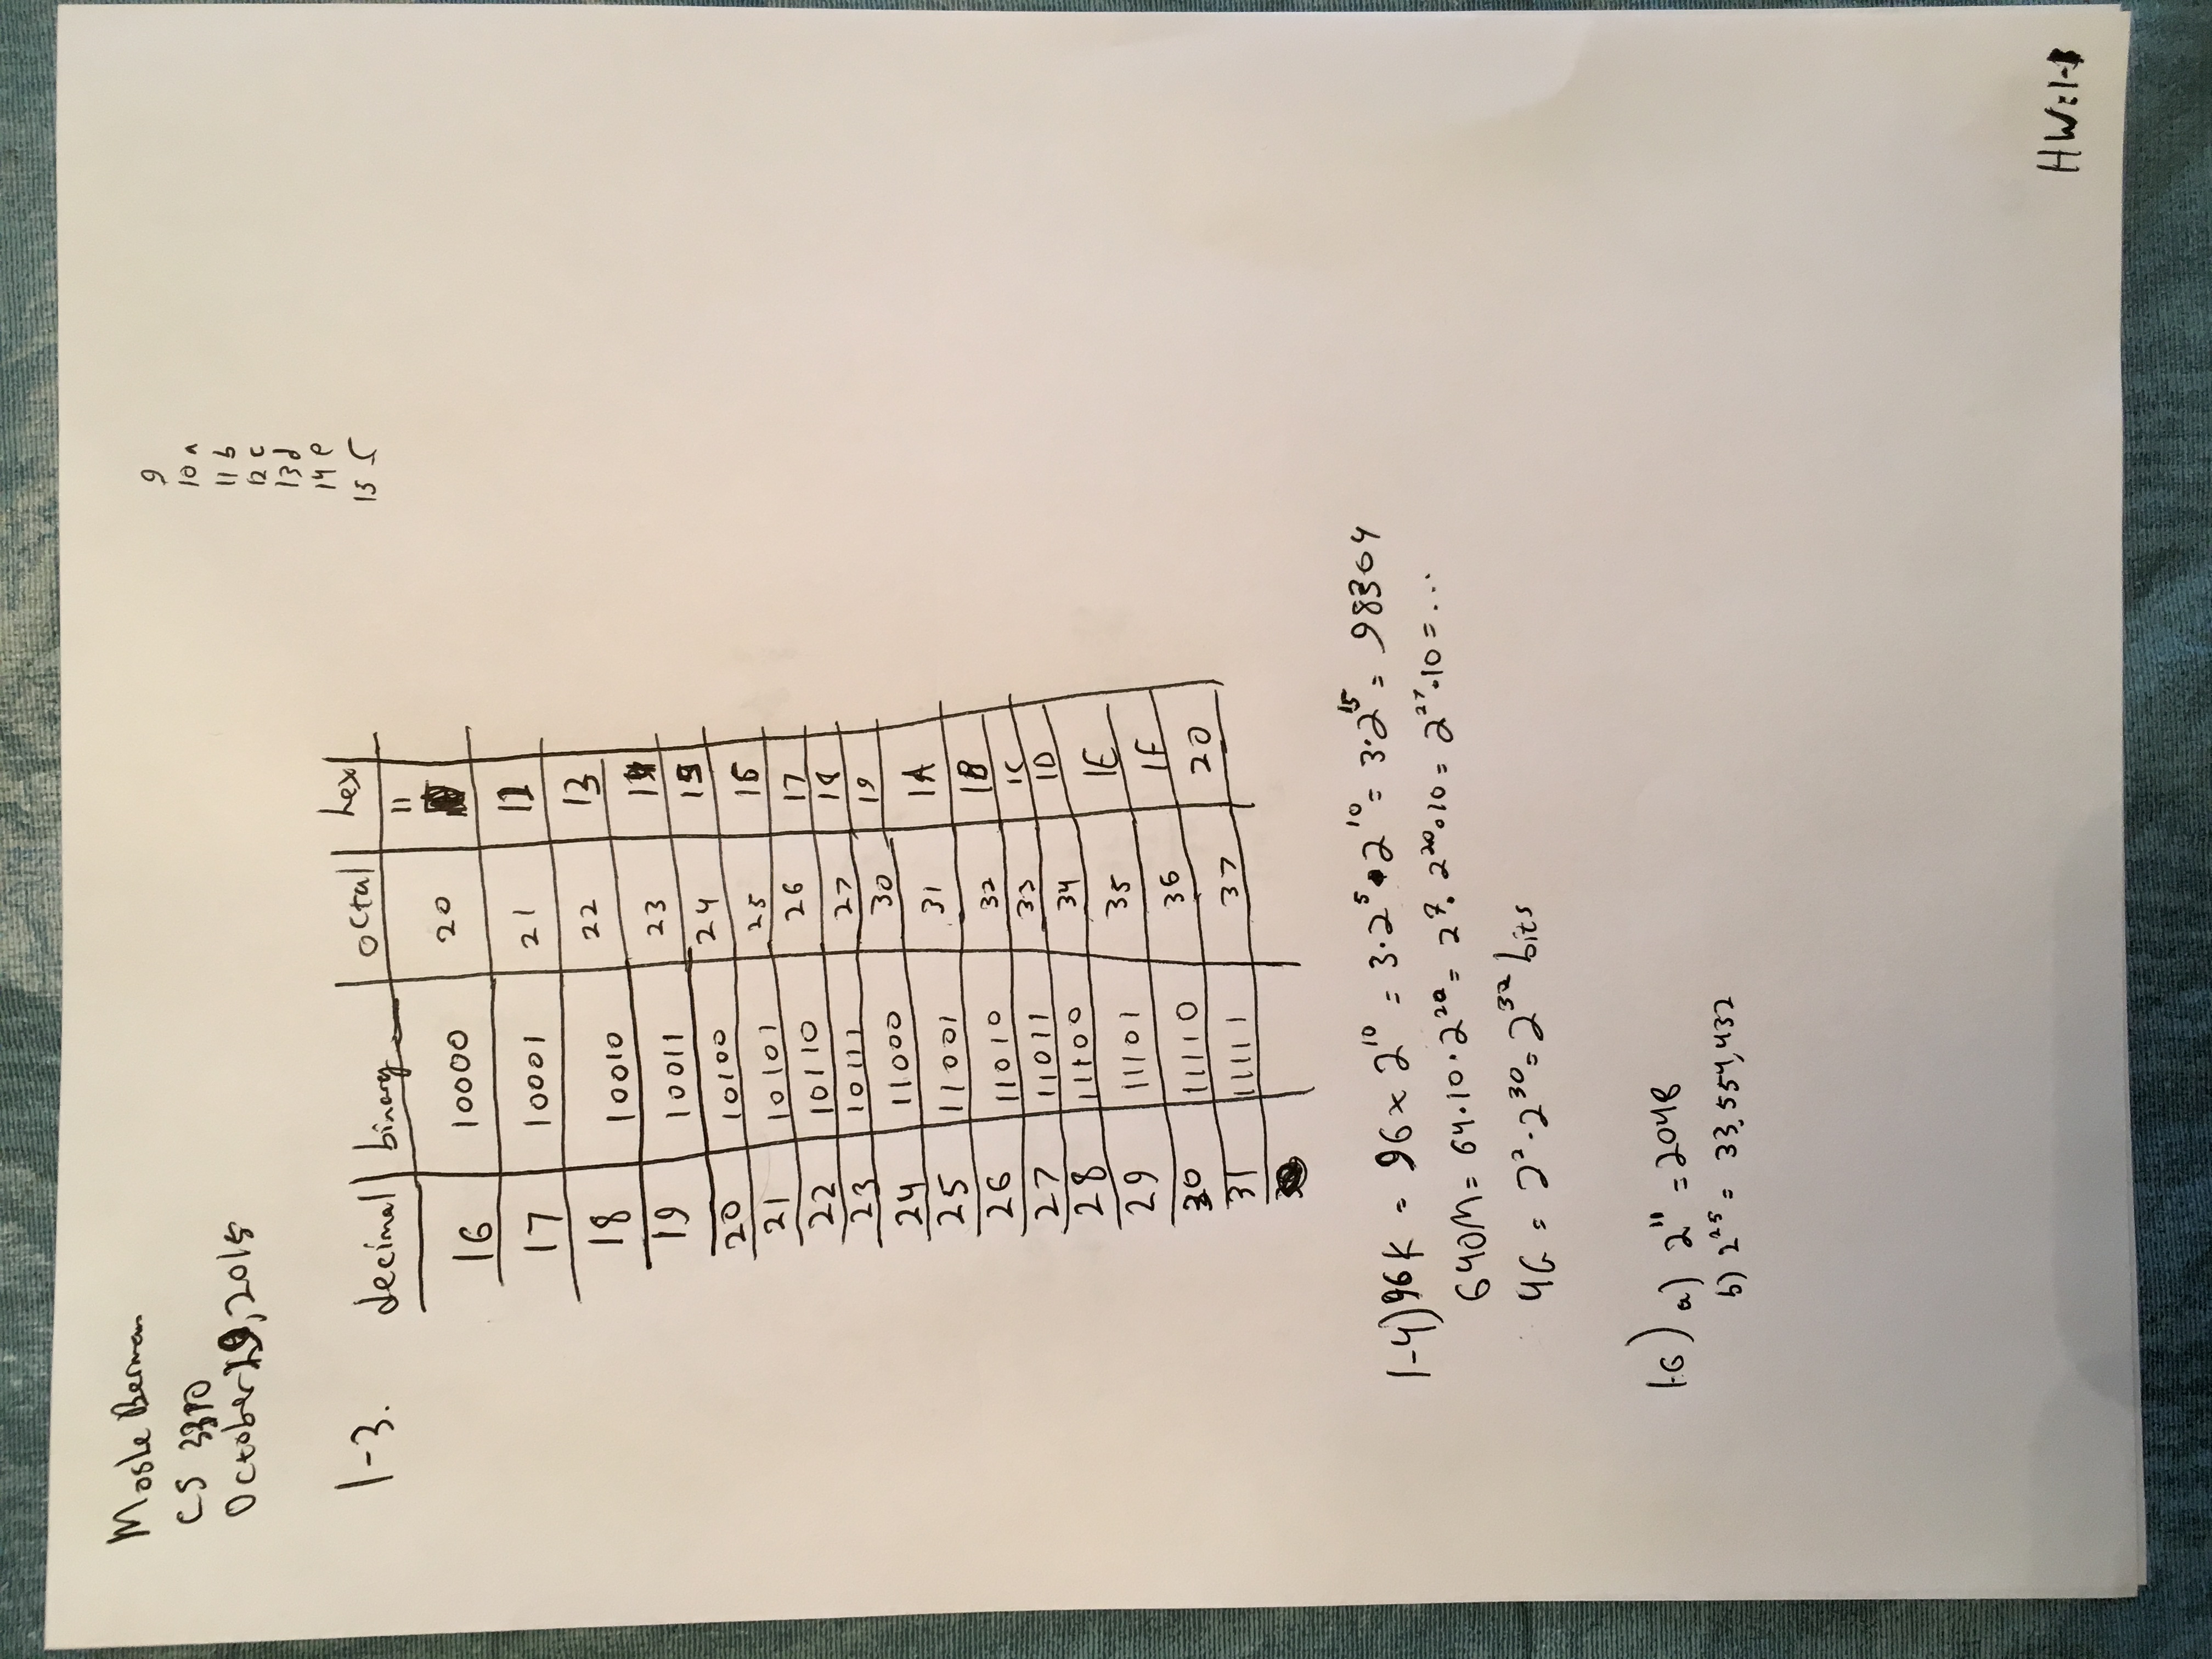 Moshe Berman
CS 3310
October 19, 2015
9
10 a
11 b
12 c
13 d
14 e
15 f
1-3.
decimal binary octal hex
16 10000 20 11
17 10001 21 12
18 10010 22 13
19 10011 23 14
20 10100 24 15
21 10101 25 16
22 10110 26 17
23 10111 27 18
24 11000 30 19
25 11001 31 1A
26 11010 32 1B
27 11011 33 1C
28 11100 34 1D
29 11101 35 1E
30 11110 36 1F
31 11111 37 20
1-4) 96K = 96 x 2^10 = 3·2^5·2^10 = 3·2^15 = 98304
640M = 64·10·2^20 = 2^7·2^20·10 = 2^27·10 = ...
4G = 2^2·2^30 = 2^32 bits
1-6) a) 2^11 = 2048
b) 2^25 = 33,554,432
HW:1-